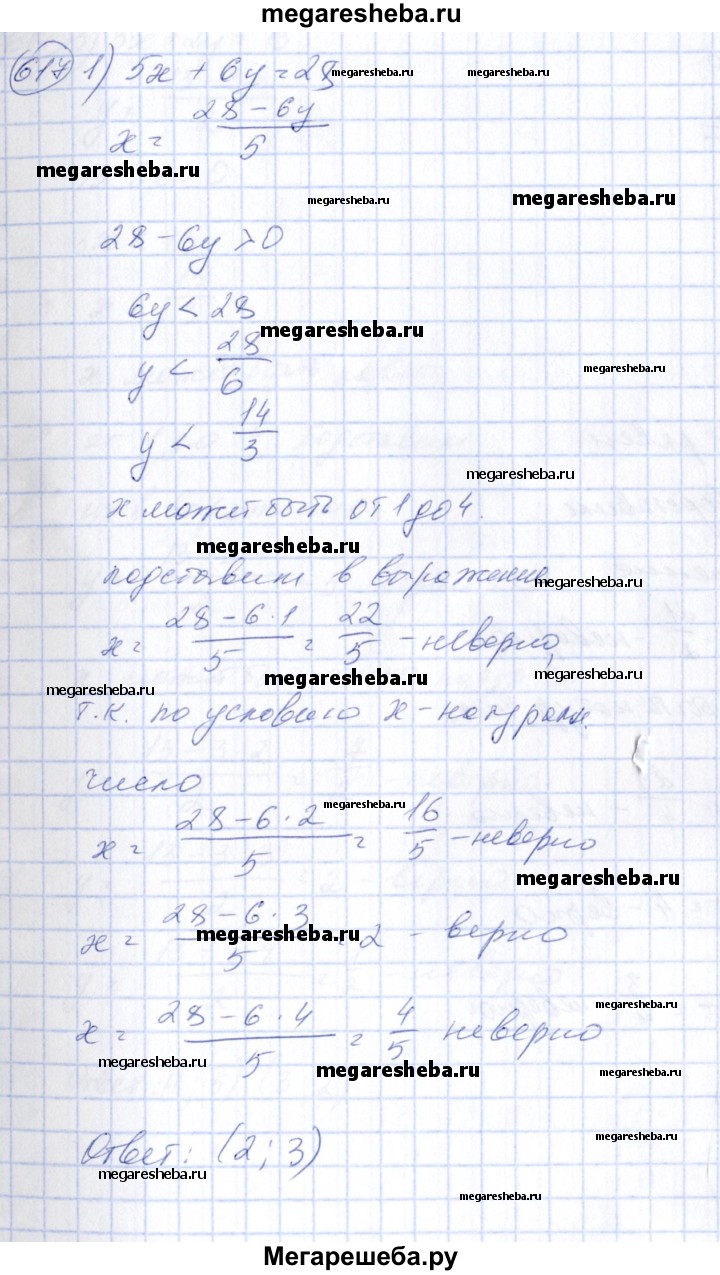 megaresheba.ru
617 1) 5x + 6y = 28 megaresheba.ru
x = (28 - 6y)/5
megaresheba.ru
megaresheba.ru megaresheba.ru
28 - 6y > 0
6y < 28
megaresheba.ru
y < 28/6
megaresheba.ru
y < 14/3
megaresheba.ru
x может быть от 1 до 4.
megaresheba.ru
подставим в выражение
megaresheba.ru
x = (28 - 6 · 1)/5 = 22/5 - неверно,
megaresheba.ru
megaresheba.ru
т.к. по условию x - натуральн.
число
megaresheba.ru
x = (28 - 6 · 2)/5 = 16/5 - неверно
megaresheba.ru
x = (28 - 6 · 3)/5 = 2 - верно
megaresheba.ru
megaresheba.ru
x = (28 - 6 · 4)/5 = 4/5 неверно
megaresheba.ru
megaresheba.ru megaresheba.ru
megaresheba.ru
Ответ: (2; 3)
megaresheba.ru
megaresheba.ru
Мегарешеба.ру